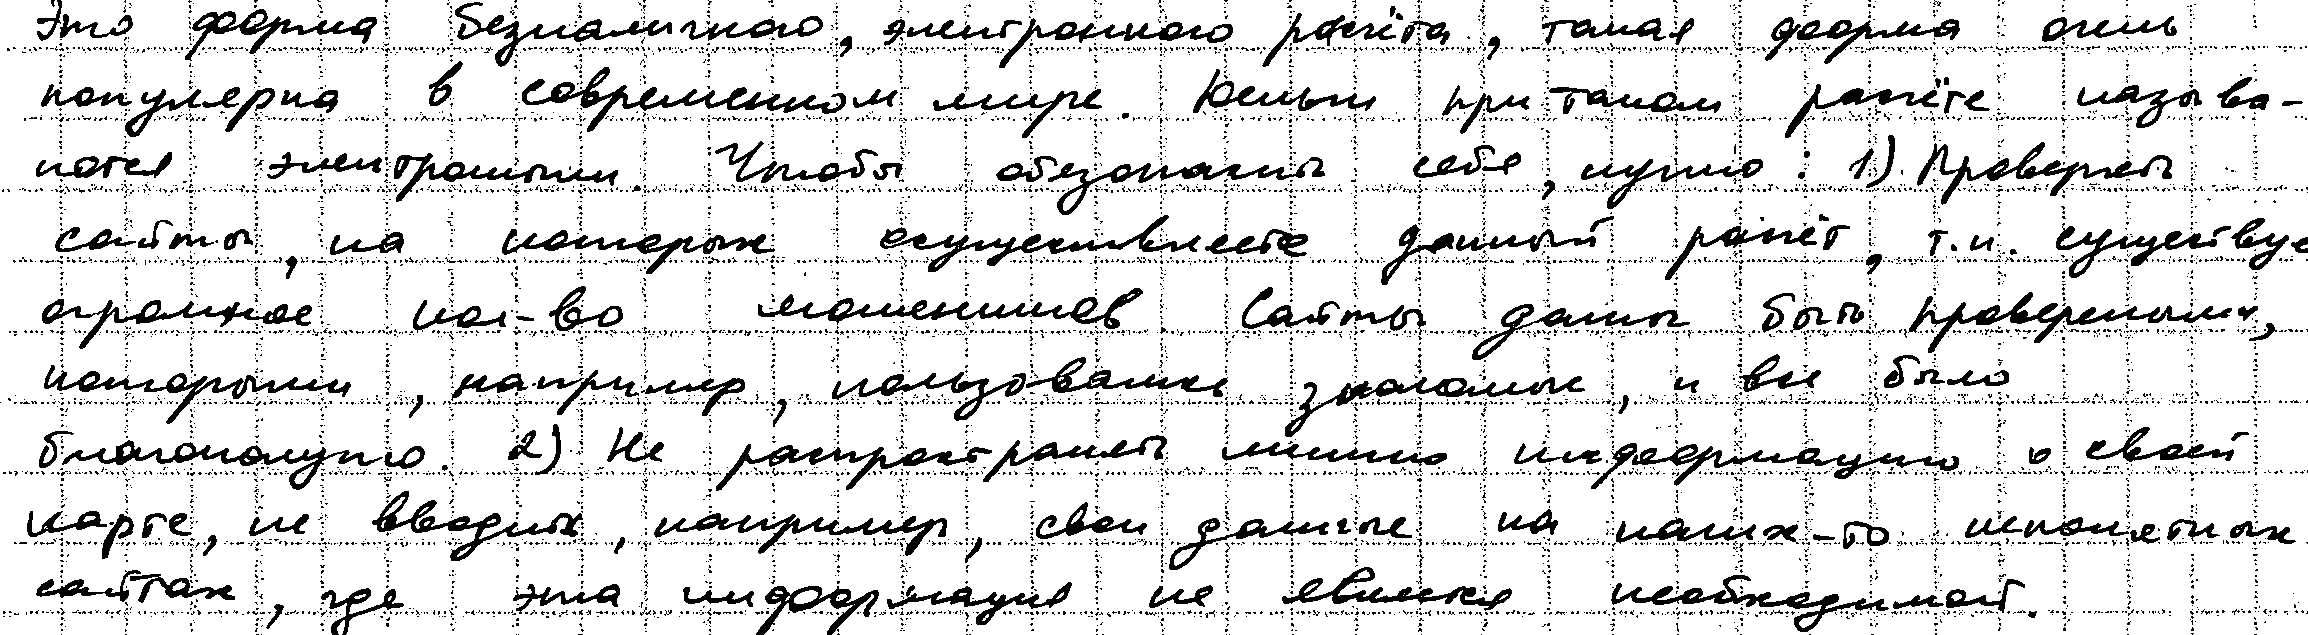 Это форма безналичного, электронного расчёта, такая форма очень
популярна в современном мире. Деньги при таком расчёте называ-
ются электронными. Чтобы обезопасить себя, нужно: 1) Проверять
сайты, на которых осуществляете данный расчёт, т.к. существует
огромное кол-во мошенников. Сайты должны быть проверенными,
которыми, например, пользовались знакомые, и все было
благополучно. 2) Не распространять лишнюю информацию о своей
карте, не вводить, например, свои данные на каких-то непонятных
сайтах, где эта информация не является необходимой.